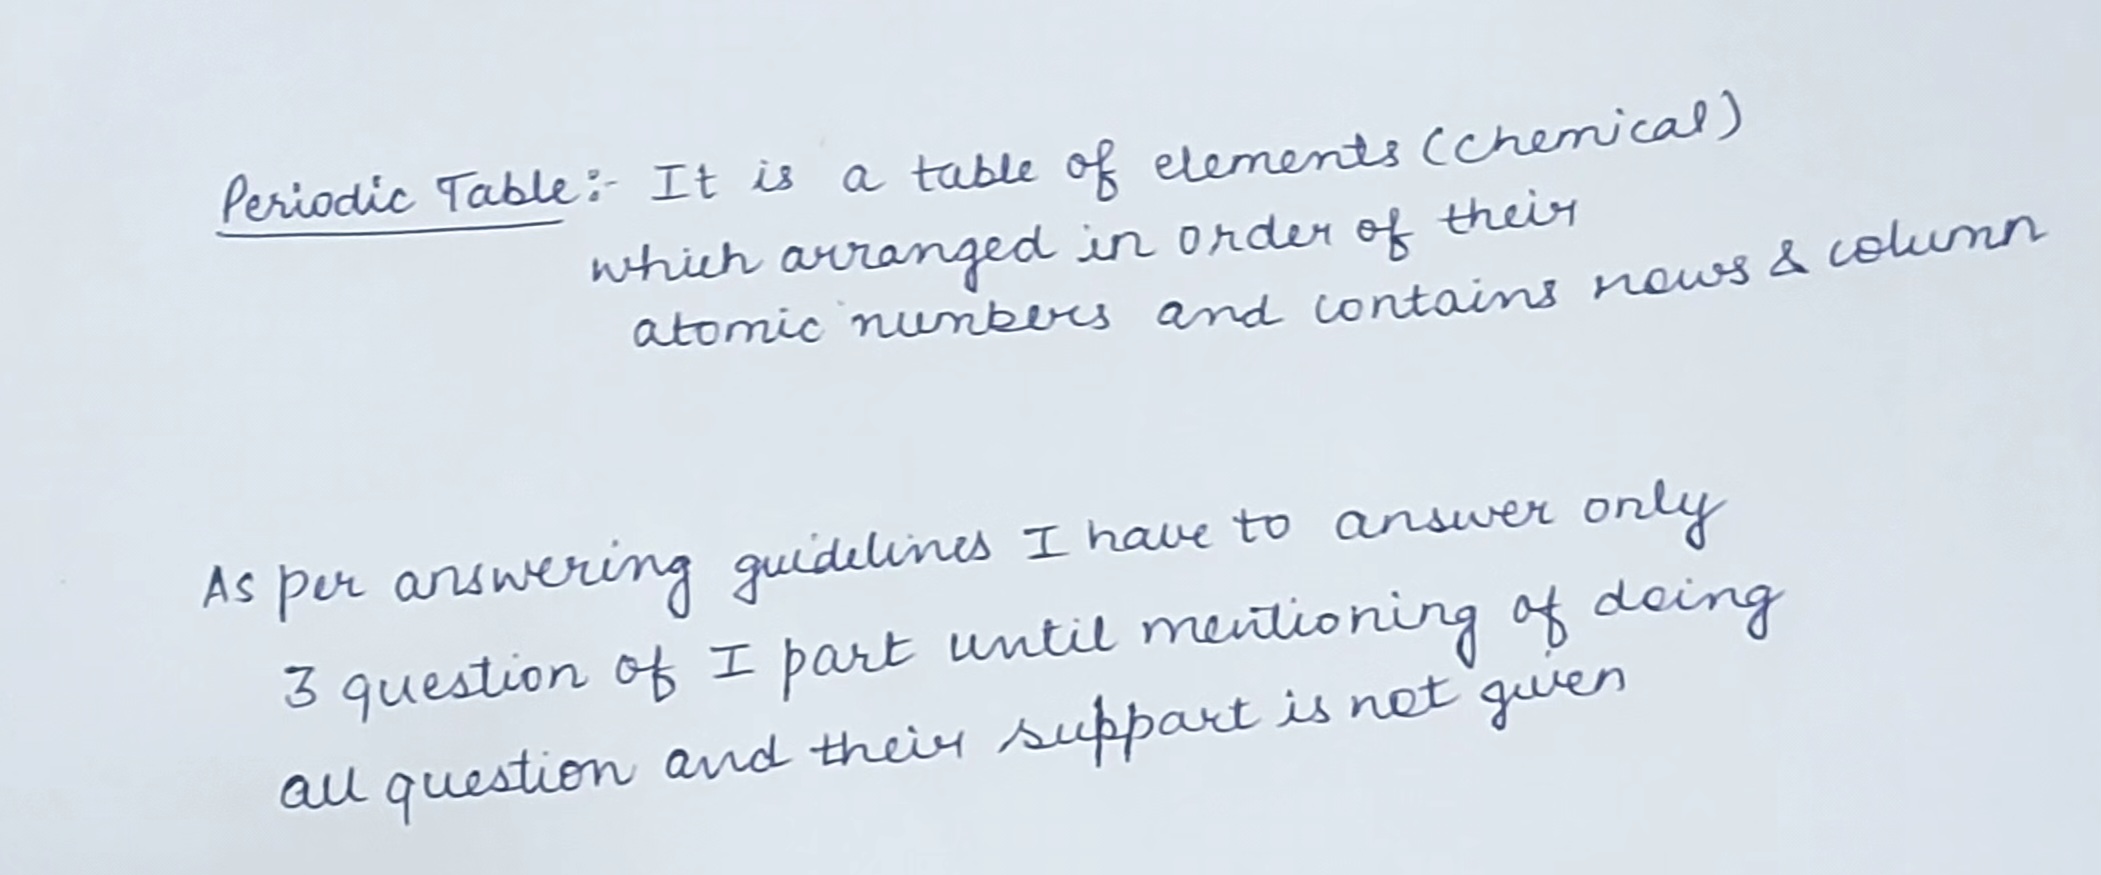 Periodic Table:- It is a table of elements (chemical)
which arranged in order of their
atomic numbers and contains rows & column
As per answering guidelines I have to answer only
3 question of I part until mentioning of doing
all question and their support is not given